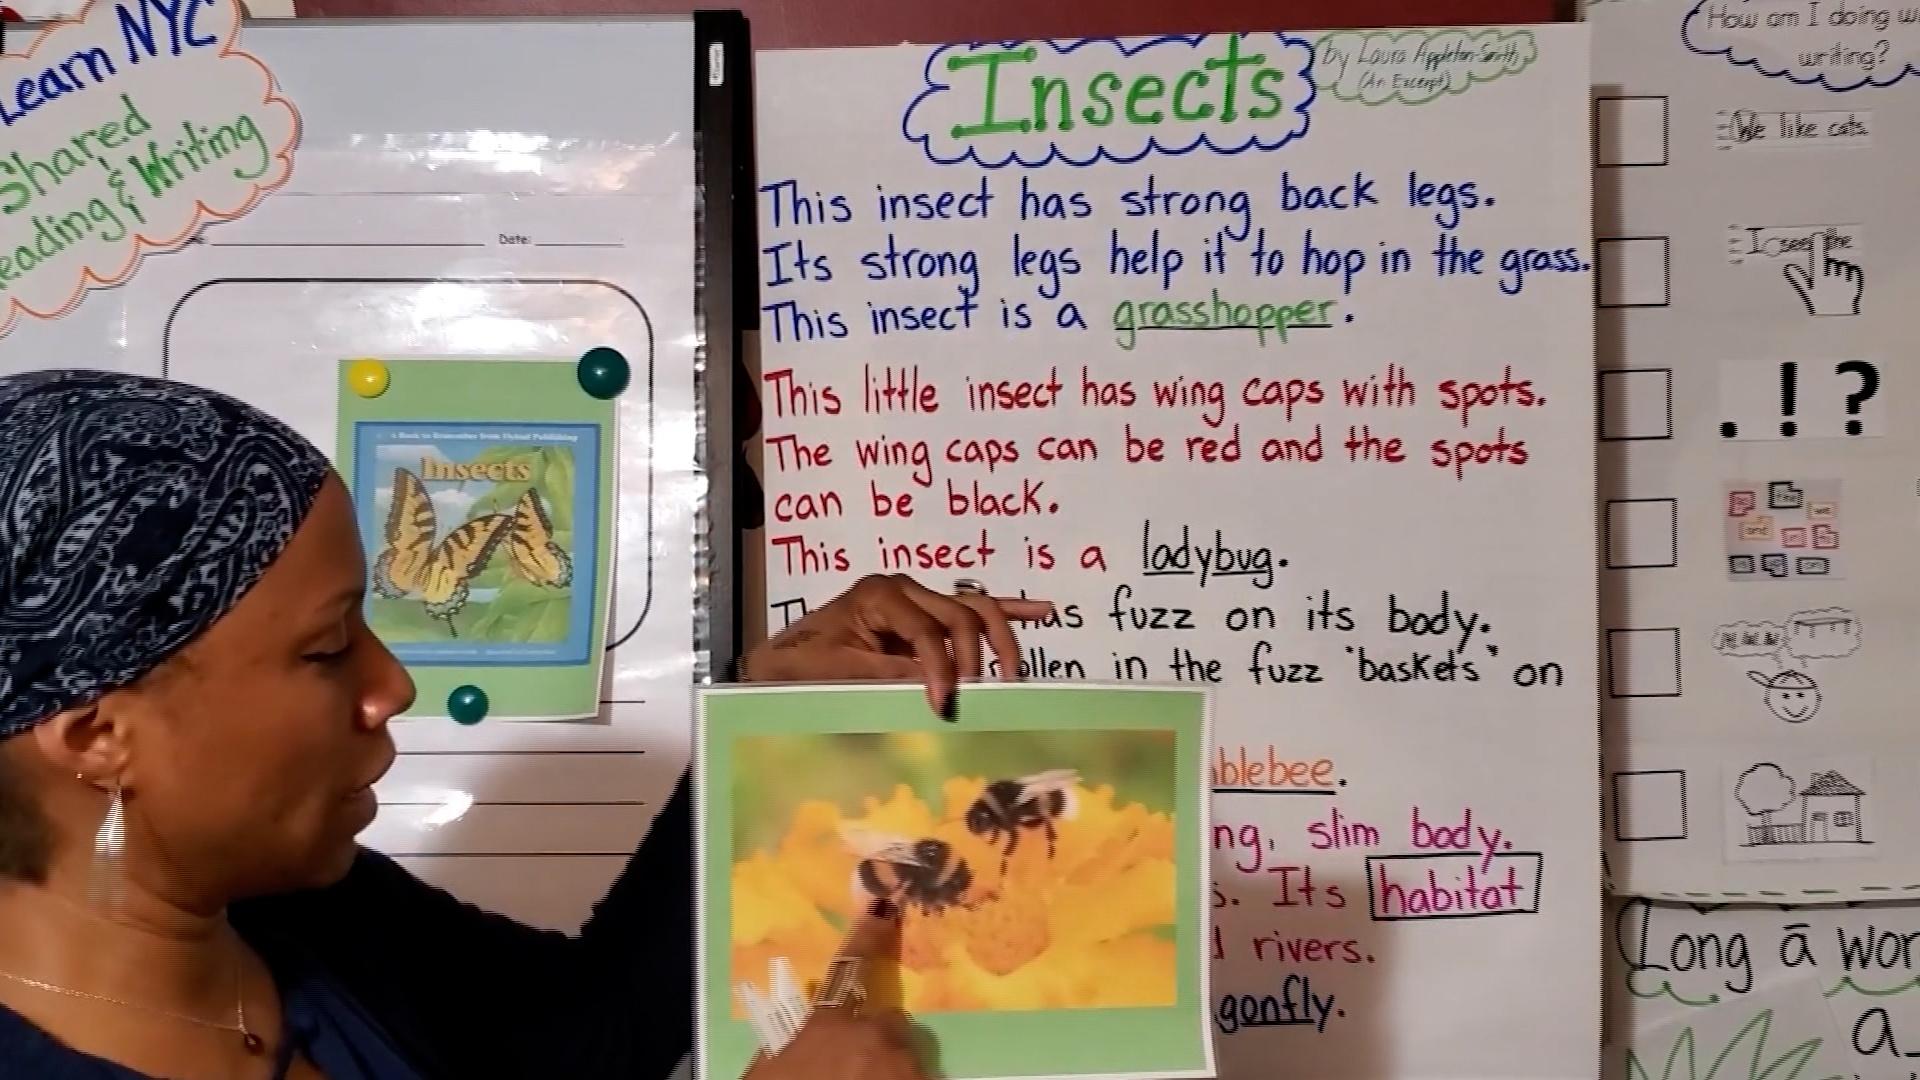 Learn NYC
Shared
&
Writing
Date:
A Book to Remember from Flyleaf Publishing
Insects
Insects
by Laura Appleton-Smith
(An Excerpt)
This insect has strong back legs.
Its strong legs help it to hop in the grass.
This insect is a grasshopper.
This little insect has wing caps with spots.
The wing caps can be red and the spots
can be black.
This insect is a ladybug.
has fuzz on its body.
in the fuzz "baskets" on
slim body.
Its habitat
rivers.
How am I doing
writing?
We like cats.
I see the
. ! ?
Long ā
a